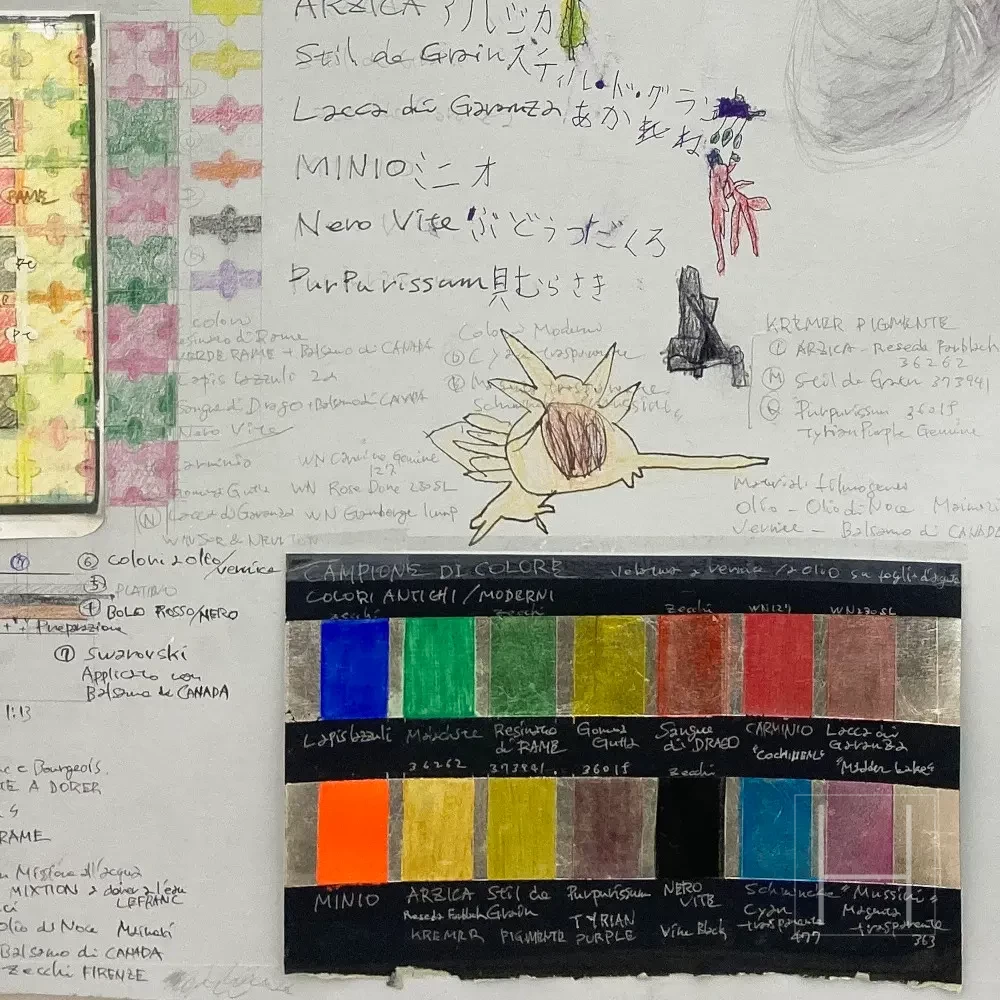 ARZICA アルジカ
Stil de Grain スティル・ド・グラン
Lacca di Garanza あかね
MINIO ミニオ
Nero Vite ぶどうつごくろ
PurPurissum 貝むらさき
RAME
colori
Resinato di Rame
VERDE RAME + Balsamo di CANADA
Lapis Lazzuli
Sangue di Drago + Balsamo di CANADA
Nero Vite
Carminio WN Carmine Genuine
127
Gomma Gutta WN Rose Dore 230SL
N Lacca di Garanza WN Gamboge lump
WINSOR & NEWTON
Colori Moderni
Cyan trasparente
KREMER PIGMENTE
ARZICA - Reseda Farblack
36262
M Stil de Grain 373941
Purpurissum 36015
Tyrian Purple Genuine
Materiali filmogeno
Olio - Olio di Noce
Vernice - Balsamo di CANADA
6 colori a olio/vernice
5 PLATINO
4 BOLO ROSSO/NERO
Preparazione
7 Swarovski
Applicato con
Balsamo di CANADA
1:13
e Bourgeois
A DORER
RAME
Missione all'acqua
MIXTION a dorer a l'eau
LEFRANC
olio di Noce
Balsamo di CANADA
Zecchi FIRENZE
CAMPIONE DI COLORE
COLORI ANTICHI/MODERNI
zecchi zecchi Zecchi WN127 WN230SL
Lapislazzuli Malachite Resinato di RAME Gomma Gutta Sangue di DRAGO CARMINIO "COCHINEAL" Lacca di Garanza "Madder Lake"
36262 373941 36015 zecchi
MINIO ARZICA Reseda Farblack KREMER Stil de Grain PIGMENTE Purpurissum TYRIAN PURPLE NERO VITE Vine Black Schmincke Cyan trasparente 477 "Mussini" Magenta trasparente 363
H